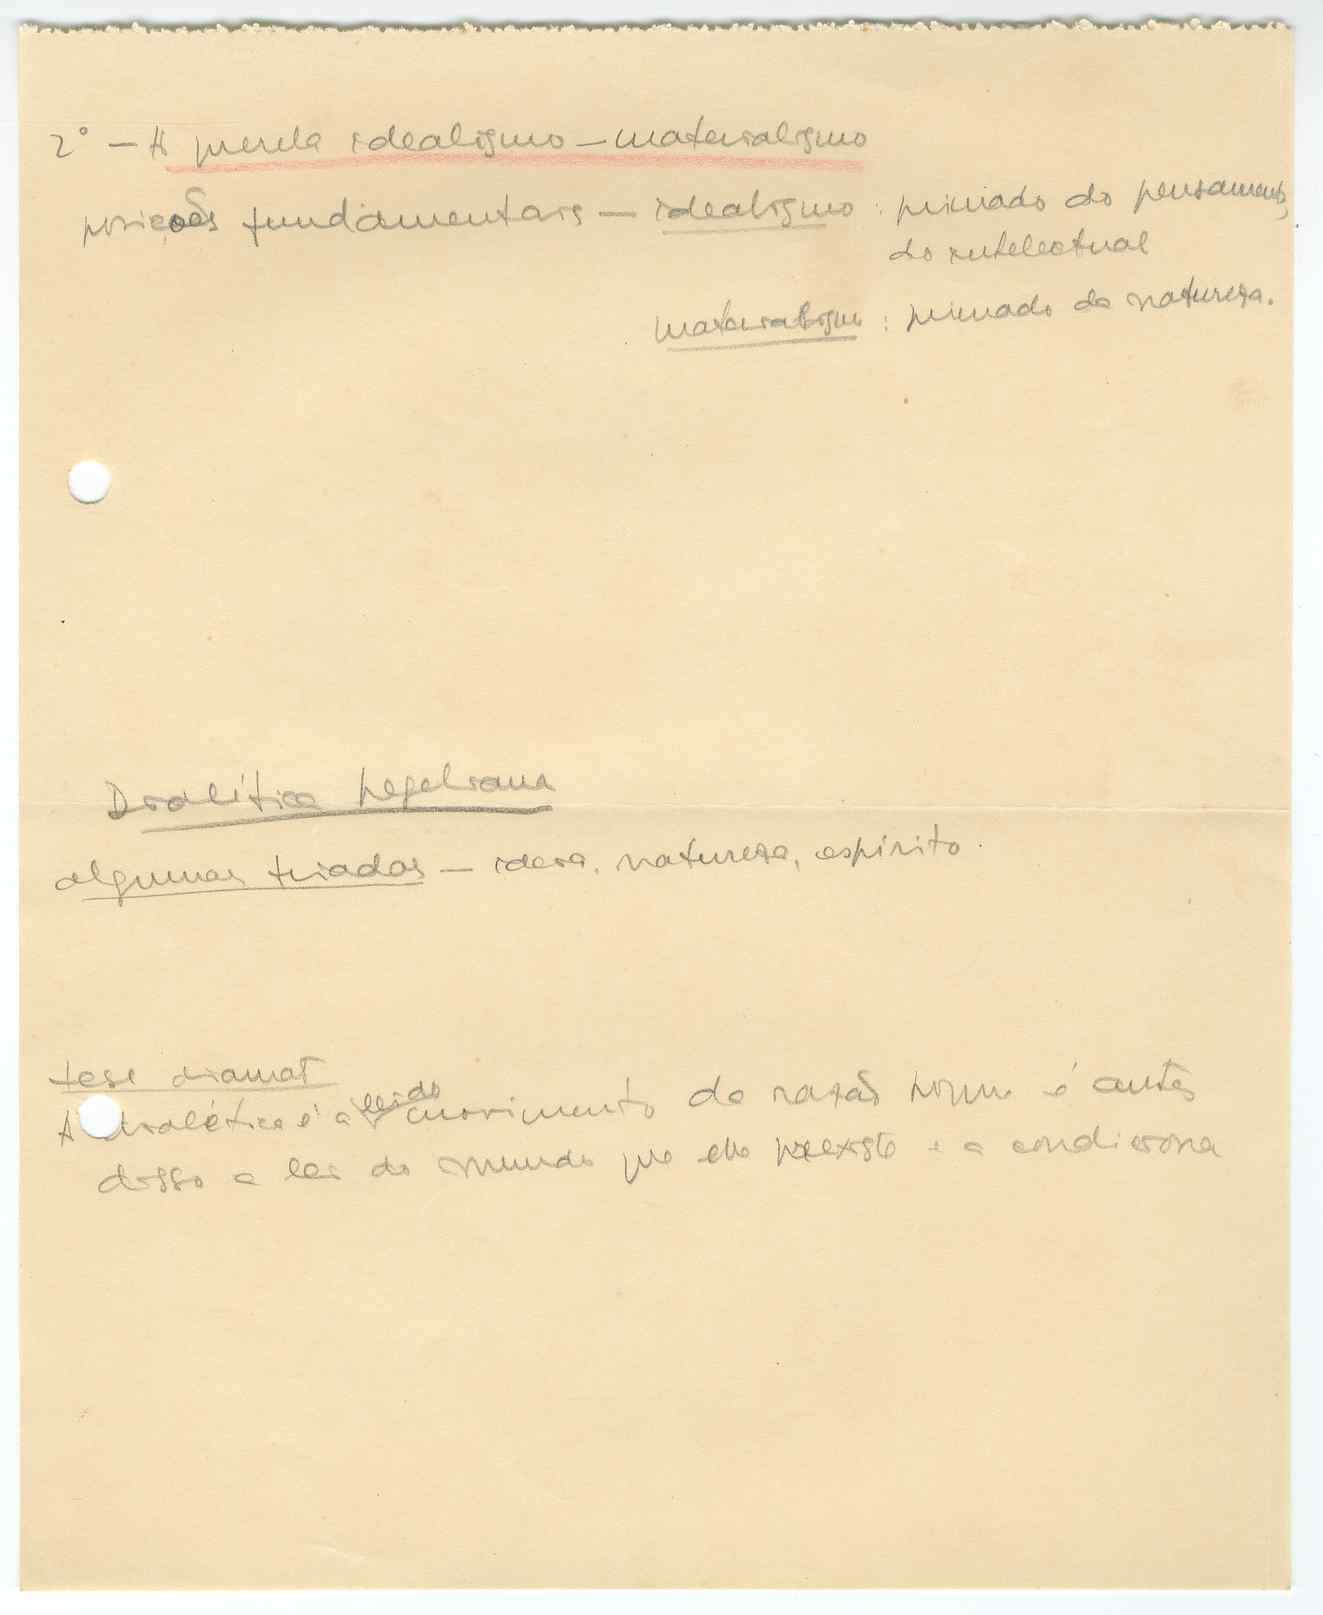 2º – A querela idealismo – materialismo
posições fundamentais – idealismo : primado do pensamento,
do intelectual
materialismo : primado da natureza.
Dialética hegeliana
algumas triadas – ideia, natureza, espírito.
tese diamat
lei do
A dialética é a movimento da razão porque é antes
disso a lei do mundo que ela preexiste e a condiciona